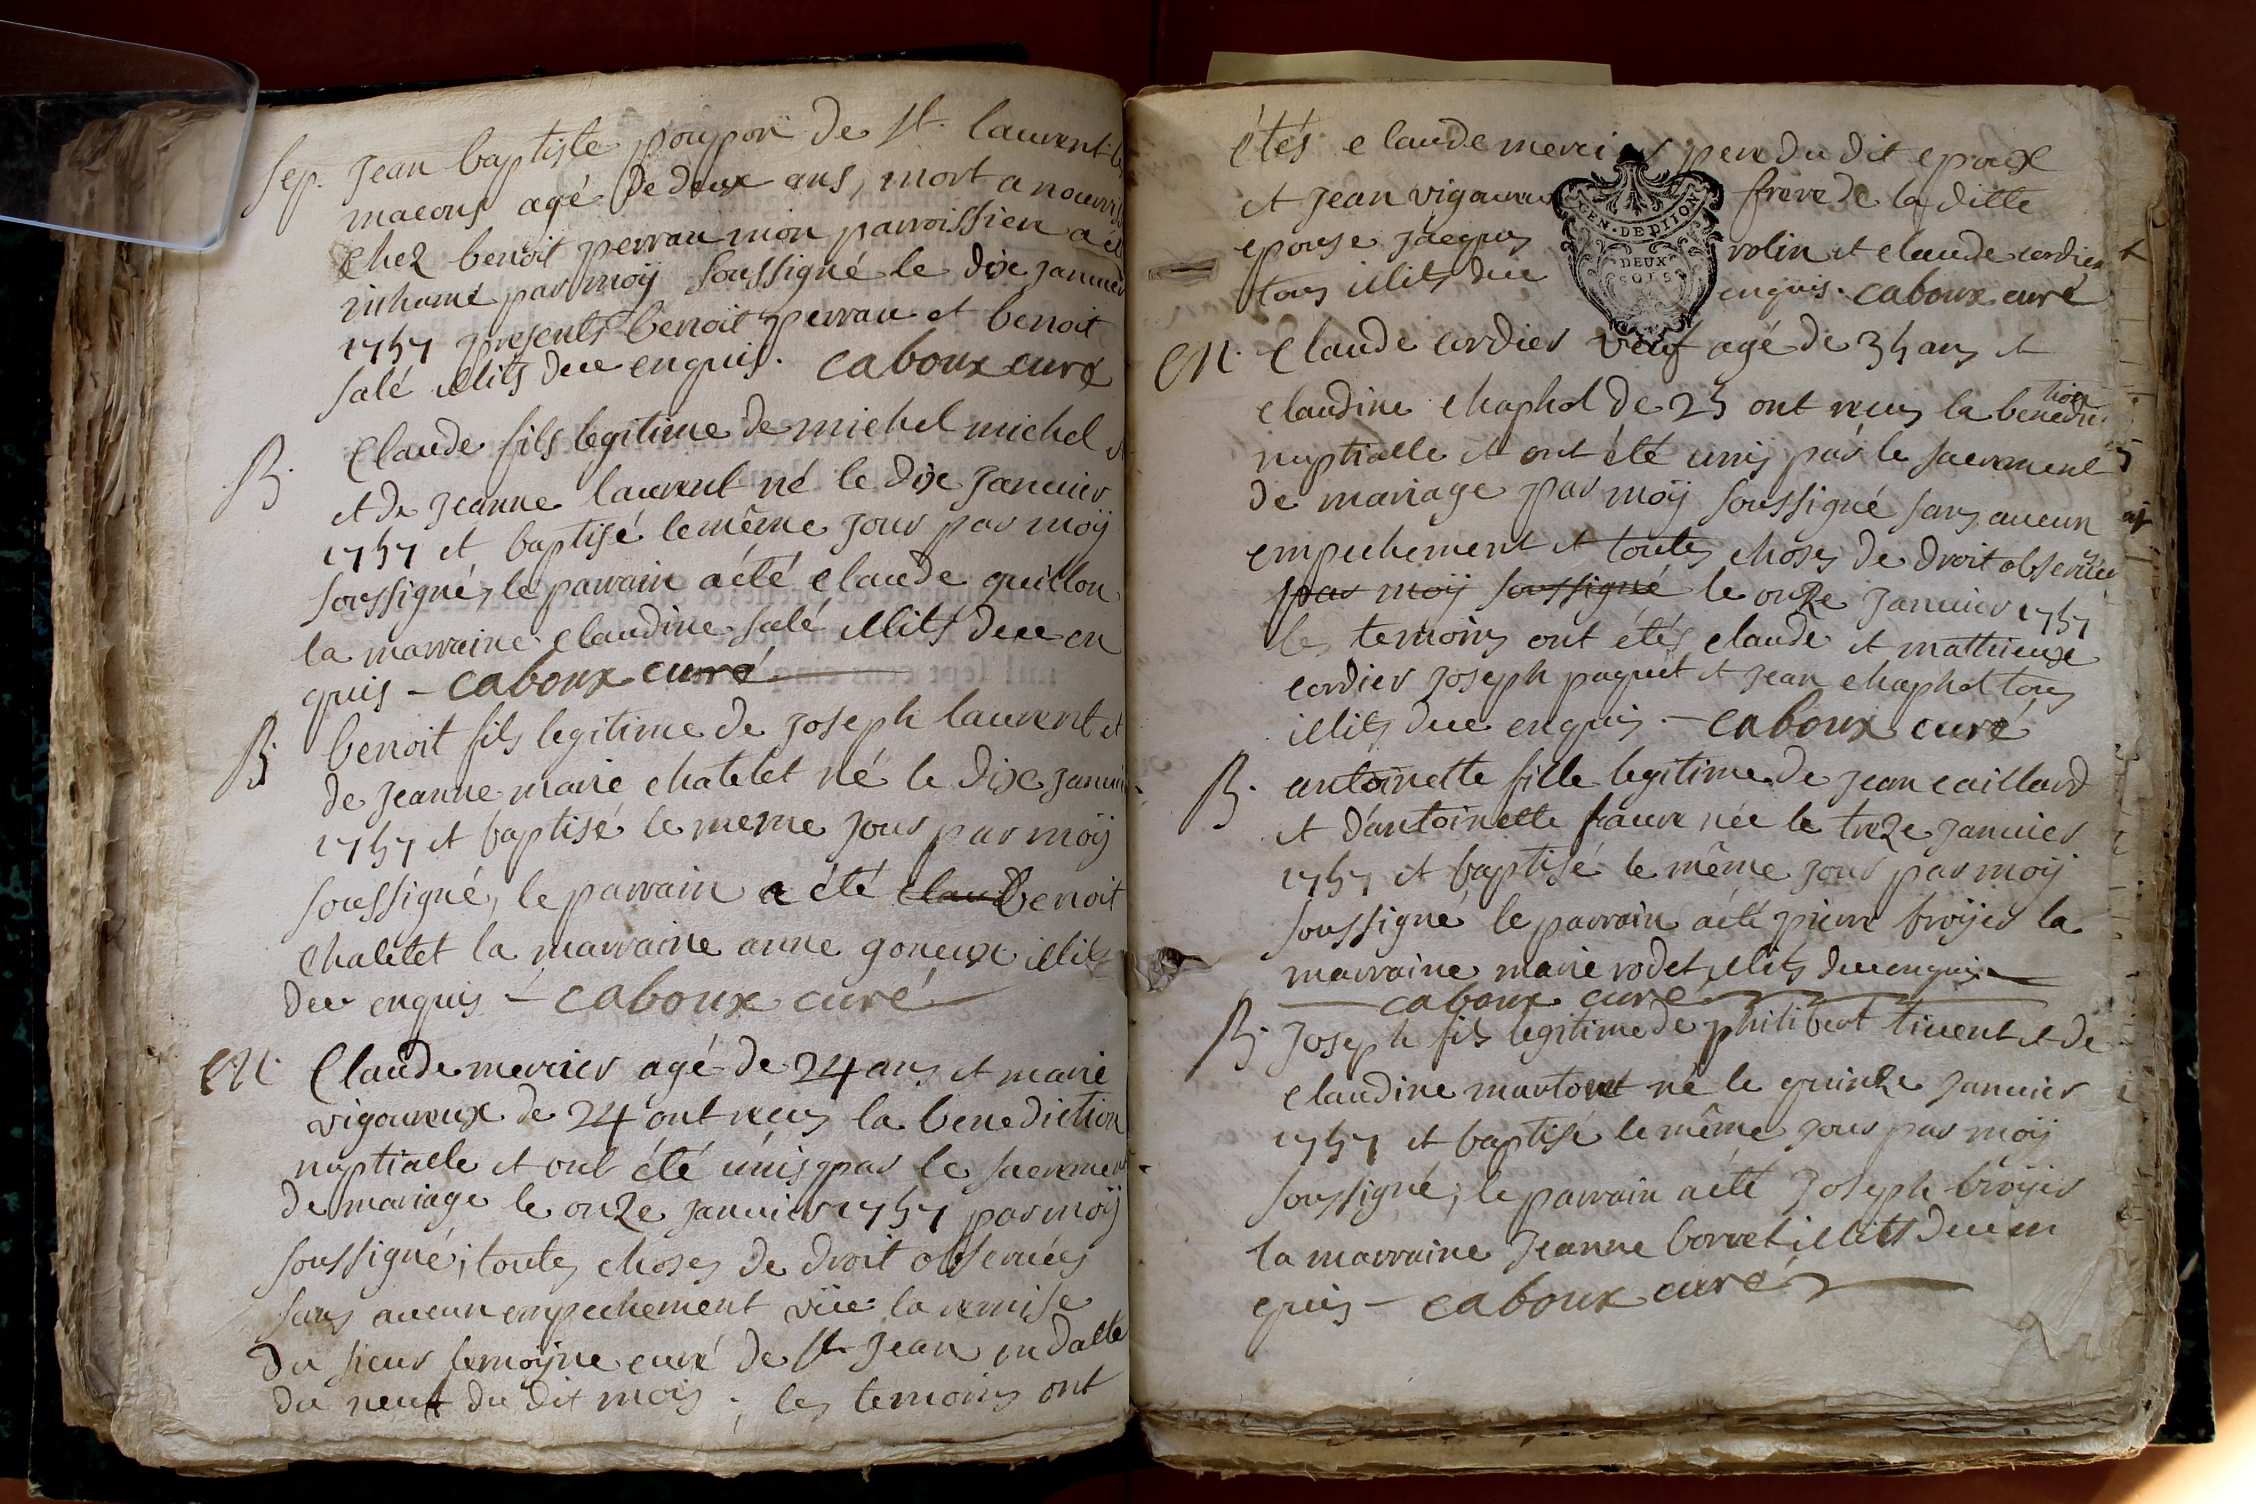 sep. Jean baptiste poupon de St. laurent les
macons agé de deux ans, mort a nourrisse
chez benoit perrau mon parroissien a été
inhumé par moÿ soussigné le dix janvier
1757 presents benoit perrau et benoit
salé illits due enquis. caboux curé
B. Claude fils legitime de michel michel et
et de jeanne laurent né le dix janvier
1757 et baptisé le même jour par moÿ
soussigné, le parrain a été claude guillon
la marraine claudine salé illits due en
quis - caboux curé
B. benoit fils legitime de joseph laurent et
de jeanne marie chatelet né le dix janvier
1757 et baptisé le meme jour par moÿ
soussigné, le parrain a été clau benoit
chatelet la marraine anne goneux illits
due enquis - caboux curé
M. Claude mercier agé de 24 ans et marie
vigoureux de 24 ont reçus la benediction
nuptialle et ont été unis par le sacrement
de mariage le onze janvier 1757 par moÿ
soussigné; toutes choses de droit observées
sans aucun empechement vüe la remise
du sieur lemoÿne curé de St Jean en datte
du neuf du dit mois; les temoins ont
étés claude mercier pere du dit epoux
et jean vigoureux frere de la ditte
epouse jacques rolin et claude cordier
tous illits due enquis. caboux curé
GEN. DE DIJON
DEUX
SOLS
M. Claude cordier veuf agé de 35 ans et
claudine chaphol de 25 ont reçus la benediction
nuptialle et ont été unis par le sacrement
de mariage par moÿ soussigné sans aucun
empechement et toutes choses de droit observées
par moÿ soussigné le onze janvier 1757
les temoins ont étés claude et matthieux
cordier joseph paquet et jean chaphol tous
illits due enquis. - caboux curé
B. antoinette fille legitime de jean caillard
et d'antoinette faure née le treze janvier
1757 et baptisé le même jour par moÿ
soussigné le parrain a été pierre broÿer la
marraine marie rodet illits due enquis
caboux curé
B. Joseph fils legitime de philibert tivent et de
claudine martoret né le quinze janvier
1757 et baptisé le même jour par moÿ
soussigné; le parrain a été joseph broÿer
la marraine jeanne borret illits due en
quis - caboux curé